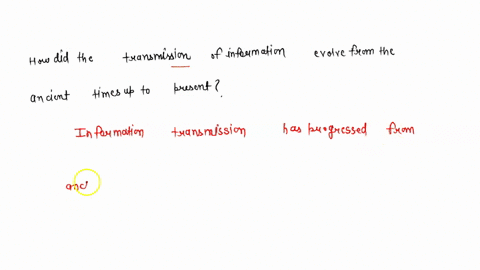 How did the transmission of information evolve from the
ancient times up to present?
Information transmission has progressed from
and